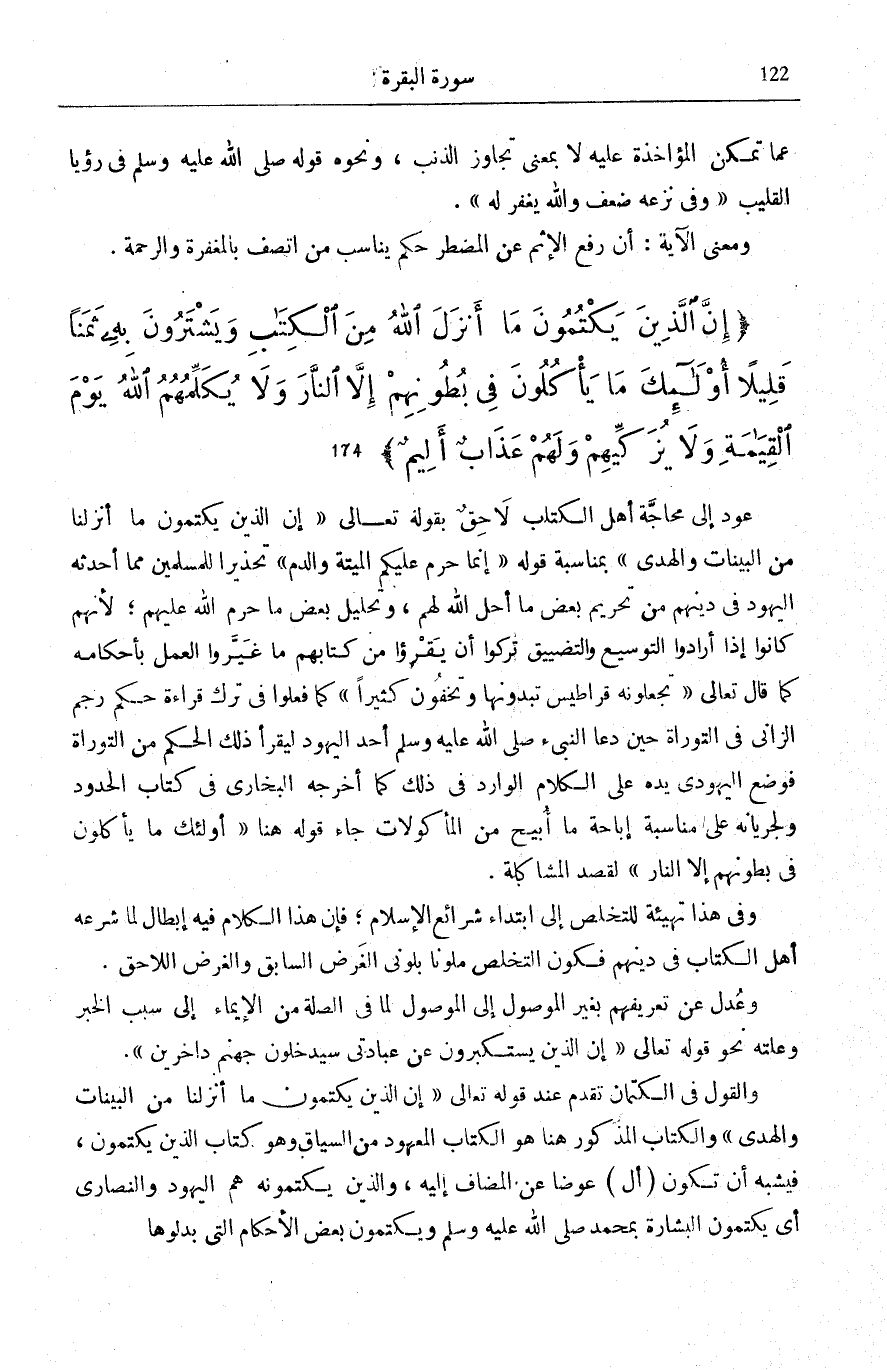 122
سورة البقرة
عما تمكن المؤاخذة عليه لا بمعنى تجاوز الذنب ، ونحوه قوله صلى الله عليه وسلم فى رؤيا
القليب « وفى نزعه ضعف والله يغفر له » .
ومعنى الآية : أن رفع الإثم عن المضطر حكم يناسب من اتصف بالمغفرة والرحمة .
﴿ إِنَّ ٱلَّذِينَ يَكْتُمُونَ مَا أَنزَلَ ٱللَّهُ مِنَ ٱلْكِتَٰبِ وَيَشْتَرُونَ بِهِۦ ثَمَنًا
قَلِيلًا أُوْلَٰٓئِكَ مَا يَأْكُلُونَ فِى بُطُونِهِمْ إِلَّا ٱلنَّارَ وَلَا يُكَلِّمُهُمُ ٱللَّهُ يَوْمَ
ٱلْقِيَٰمَةِ وَلَا يُزَكِّيهِمْ وَلَهُمْ عَذَابٌ أَلِيمٌ ﴾ 174
عود إلى محاجَّة أهل الكتاب لَاحِقٌ بقوله تعالى « إن الذين يكتمون ما أنزلنا
من البينات والهدى » بمناسبة قوله « إنما حرم عليكم الميتة والدم» تحذيرا للمسلمين مما أحدثه
اليهود فى دينهم من تحريم بعض ما أحل الله لهم ، وتحليل بعض ما حرم الله عليهم ؛ لأنهم
كانوا إذا أرادوا التوسيع والتضييق تركوا أن يَقْرَؤا من كتابهم ما غَيَّروا العمل بأحكامه
كما قال تعالى « تجعلونه قراطيس تبدونها وتخفُون كثيراً » كما فعلوا فى ترك قراءة حكم رجم
الزانى فى التوراة حين دعا النبىء صلى الله عليه وسلم أحد اليهود ليقرأ ذلك الحكم من التوراة
فوضع اليهودى يده على الكلام الوارد فى ذلك كما أخرجه البخارى فى كتاب الحدود
ولجريانه على مناسبة إباحة ما أُبيح من المأكولات جاء قوله هنا « أولئك ما يأكلون
فى بطونهم إلا النار » لقصد المشاكلة .
وفى هذا تهيئة للتخلص إلى ابتداء شرائع الإسلام ؛ فإن هذا الكلام فيه إبطال لما شرعه
أهل الكتاب فى دينهم فكون التخلص ملونا بلونى الغَرض السابق والغرض اللاحق .
وعُدل عن تعريفهم بغير الموصول إلى الموصول لما فى الصلة من الإيماء إلى سبب الخبر
وعلته نحو قوله تعالى « إن الذين يستكبرون عن عبادتى سيدخلون جهنم داخرين ».
والقول فى الكتمان تقدم عند قوله تعالى « إن الذين يكتمون ما أنزلنا من البينات
والهدى » والكتاب المذكور هنا هو الكتاب المعهود من السياق وهو كتاب الذين يكتمون ،
فيشبه أن تكون (أل) عوضا عن المضاف إليه ، والذين يكتمونه هم اليهود والنصارى
أى يكتمون البشارة بمحمد صلى الله عليه وسلم ويكتمون بعض الأحكام التى بدلوها